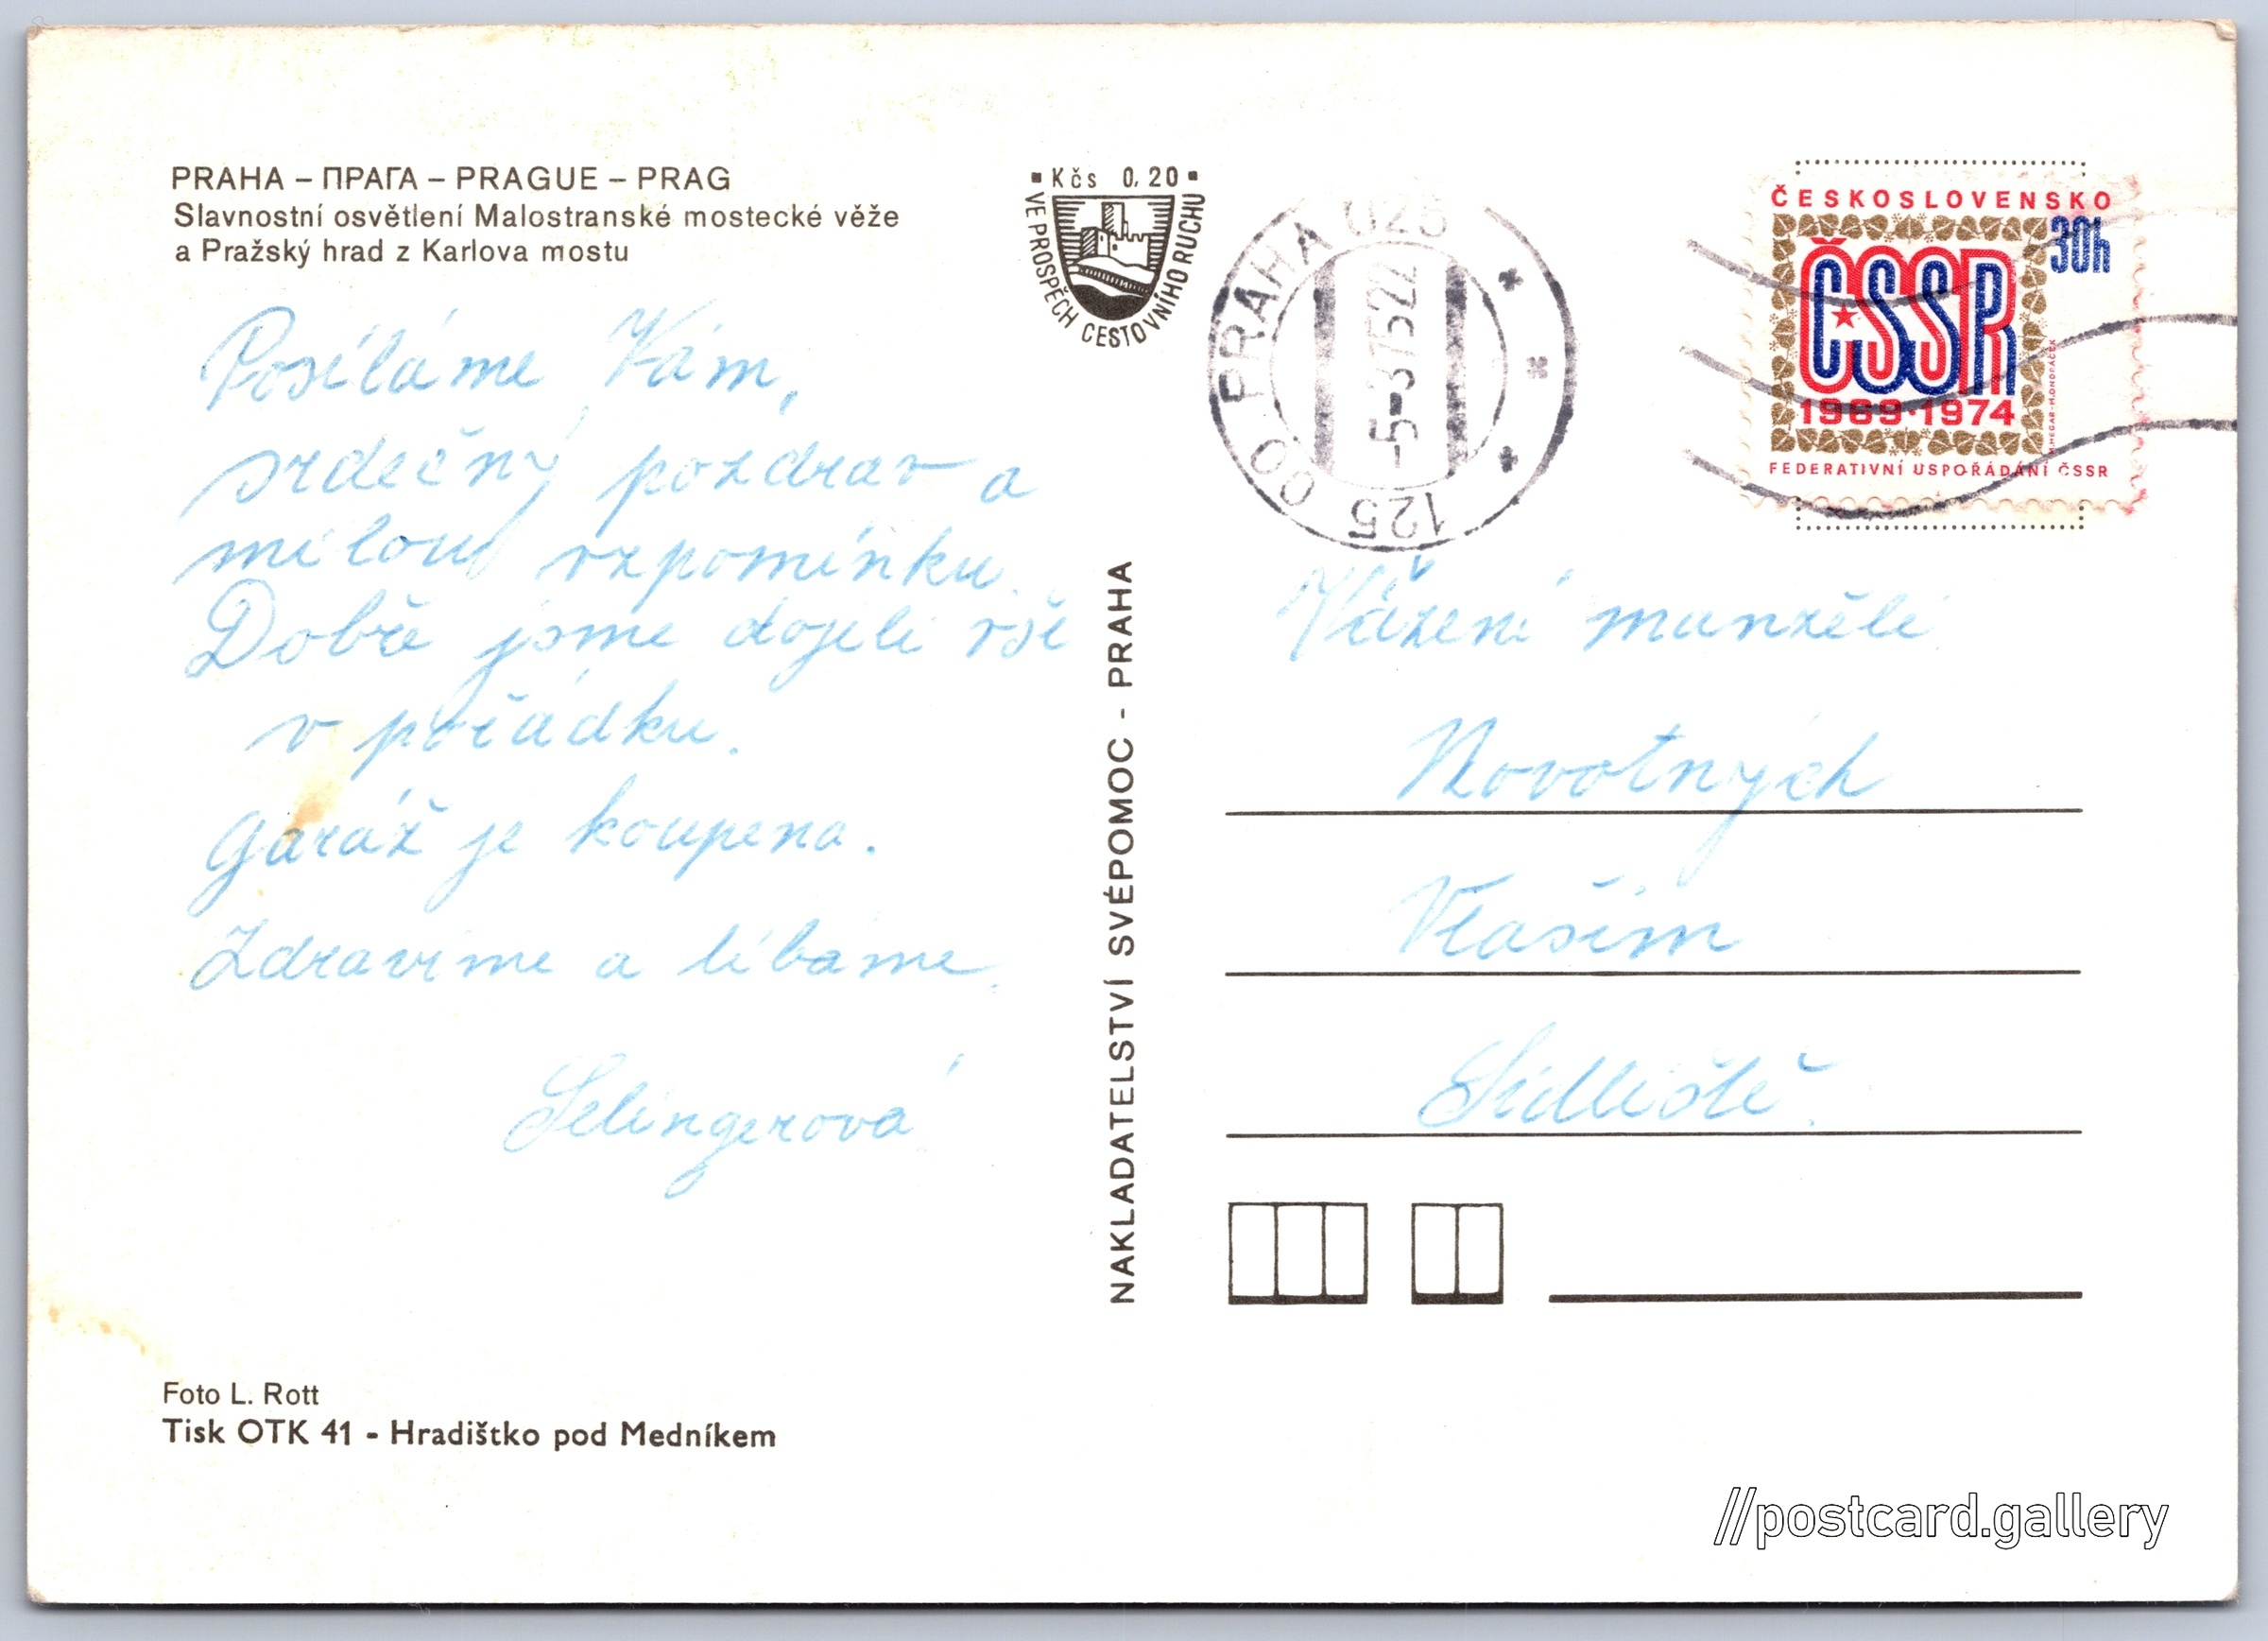 PRAHA – ПРАГА – PRAGUE – PRAG
Slavnostní osvětlení Malostranské mostecké věže
a Pražský hrad z Karlova mostu
Kčs 0,20
VE PROSPĚCH CESTOVNÍHO RUCHU
Posíláme Vám,
srdečný pozdrav a
milou vzpomínku.
Dobře jsme dojeli vše
v pořádku.
Garáž je koupena.
Zdravíme a líbáme.
Selingerová.
Foto L. Rott
Tisk OTK 41 - Hradištko pod Medníkem
NAKLADATELSTVÍ SVÉPOMOC - PRAHA
PRAHA 025
-5-3 75 22
125 00
ČESKOSLOVENSKO
30h
ČSSR
1969·1974
FEDERATIVNÍ USPOŘÁDÁNÍ ČSSR
Vážení manželé
Novotných
Vlašim
Sídliště.
//postcard.gallery